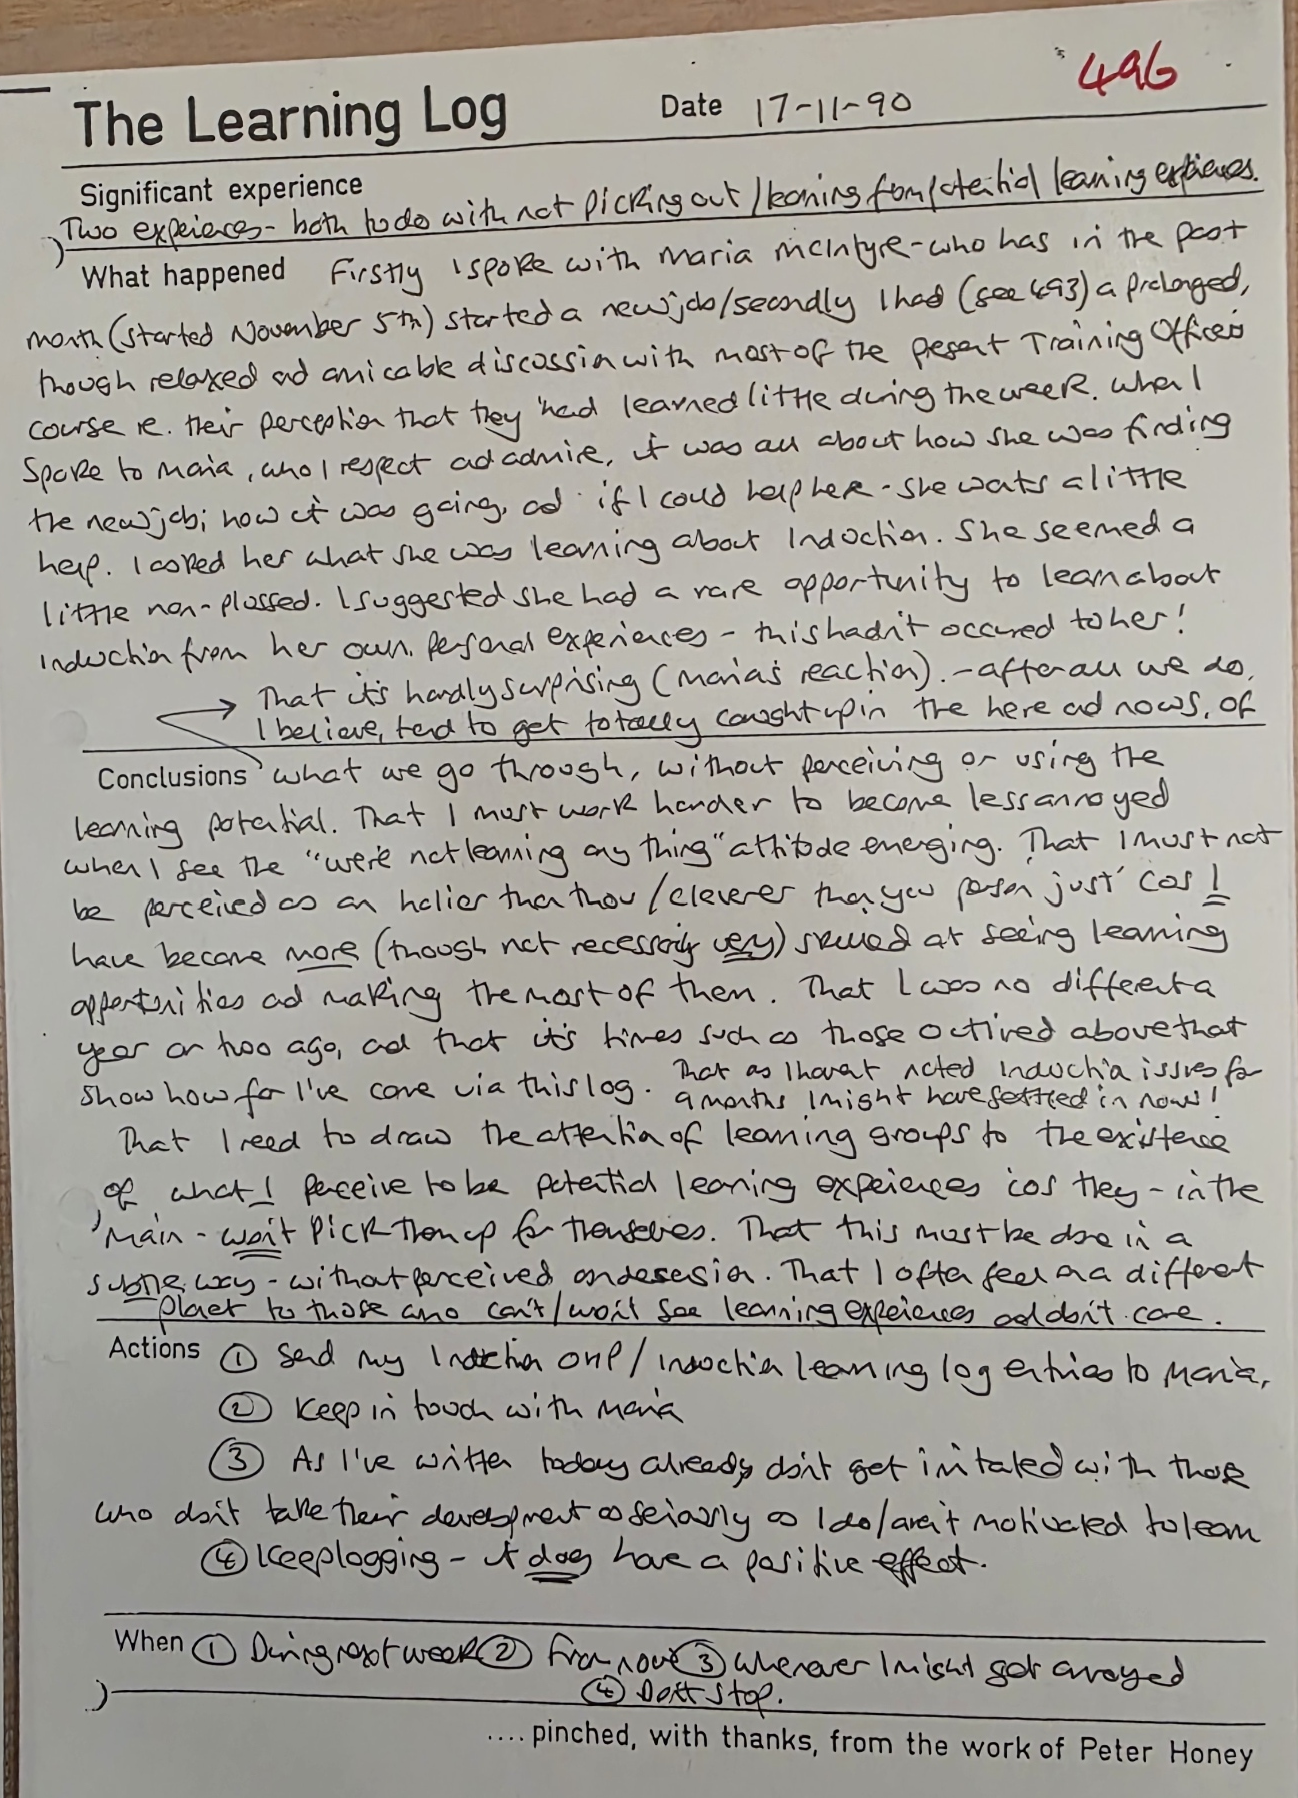 496
The Learning Log Date 17-11-90
Significant experience
Two experiences - both to do with not picking out/learning from potential learning experiences.
What happened Firstly I spoke with Maria McIntyre - who has in the past
month (started November 5th) started a new job/secondly I had (see 493) a prolonged,
though relaxed and amicable discussion with most of the present Training Officers
course re. their perception that they 'had learned little during the week. When I
spoke to Maria, who I respect and admire, it was all about how she was finding
the new job; how it was going, and if I could help her - she wants a little
help. I asked her what she was learning about Induction. She seemed a
little non-plussed. I suggested she had a rare opportunity to learn about
Induction from her own personal experiences - this hadn't occured to her!
That it's hardly surprising (Maria's reaction). - after all we do,
I believe, tend to get totally caught up in the here and nows, of
Conclusions what we go through, without perceiving or using the
learning potential. That I must work harder to become less annoyed
when I see the "we're not learning any thing" attitude emerging. That I must not
be perceived as an holier than thou/cleverer than you person just 'cos I
have become more (though not necessarily very) skilled at seeing learning
opportunities and making the most of them. That I was no different a
year or two ago, and that it's times such as those outlined above that
show how far I've come via this log. That as I haven't noted Induction issues for
9 months I might have settled in now!
That I need to draw the attention of learning groups to the existence
of what I perceive to be potential learning experiences 'cos they - in the
main - won't pick them up for themselves. That this must be done in a
subtle way - without perceived condescension. That I often feel on a different
planet to those who can't/won't see learning experiences and don't care.
Actions ① Send my Induction OHP/Induction learning log entries to Maria,
② Keep in touch with Maria
③ As I've written today already don't get irritated with those
who don't take their development as seriously as I do/aren't motivated to learn
④ Keep logging - it does have a positive effect.
When ① During next week ② From now ③ Whenever I might get annoyed
④ Don't stop.
.... pinched, with thanks, from the work of Peter Honey